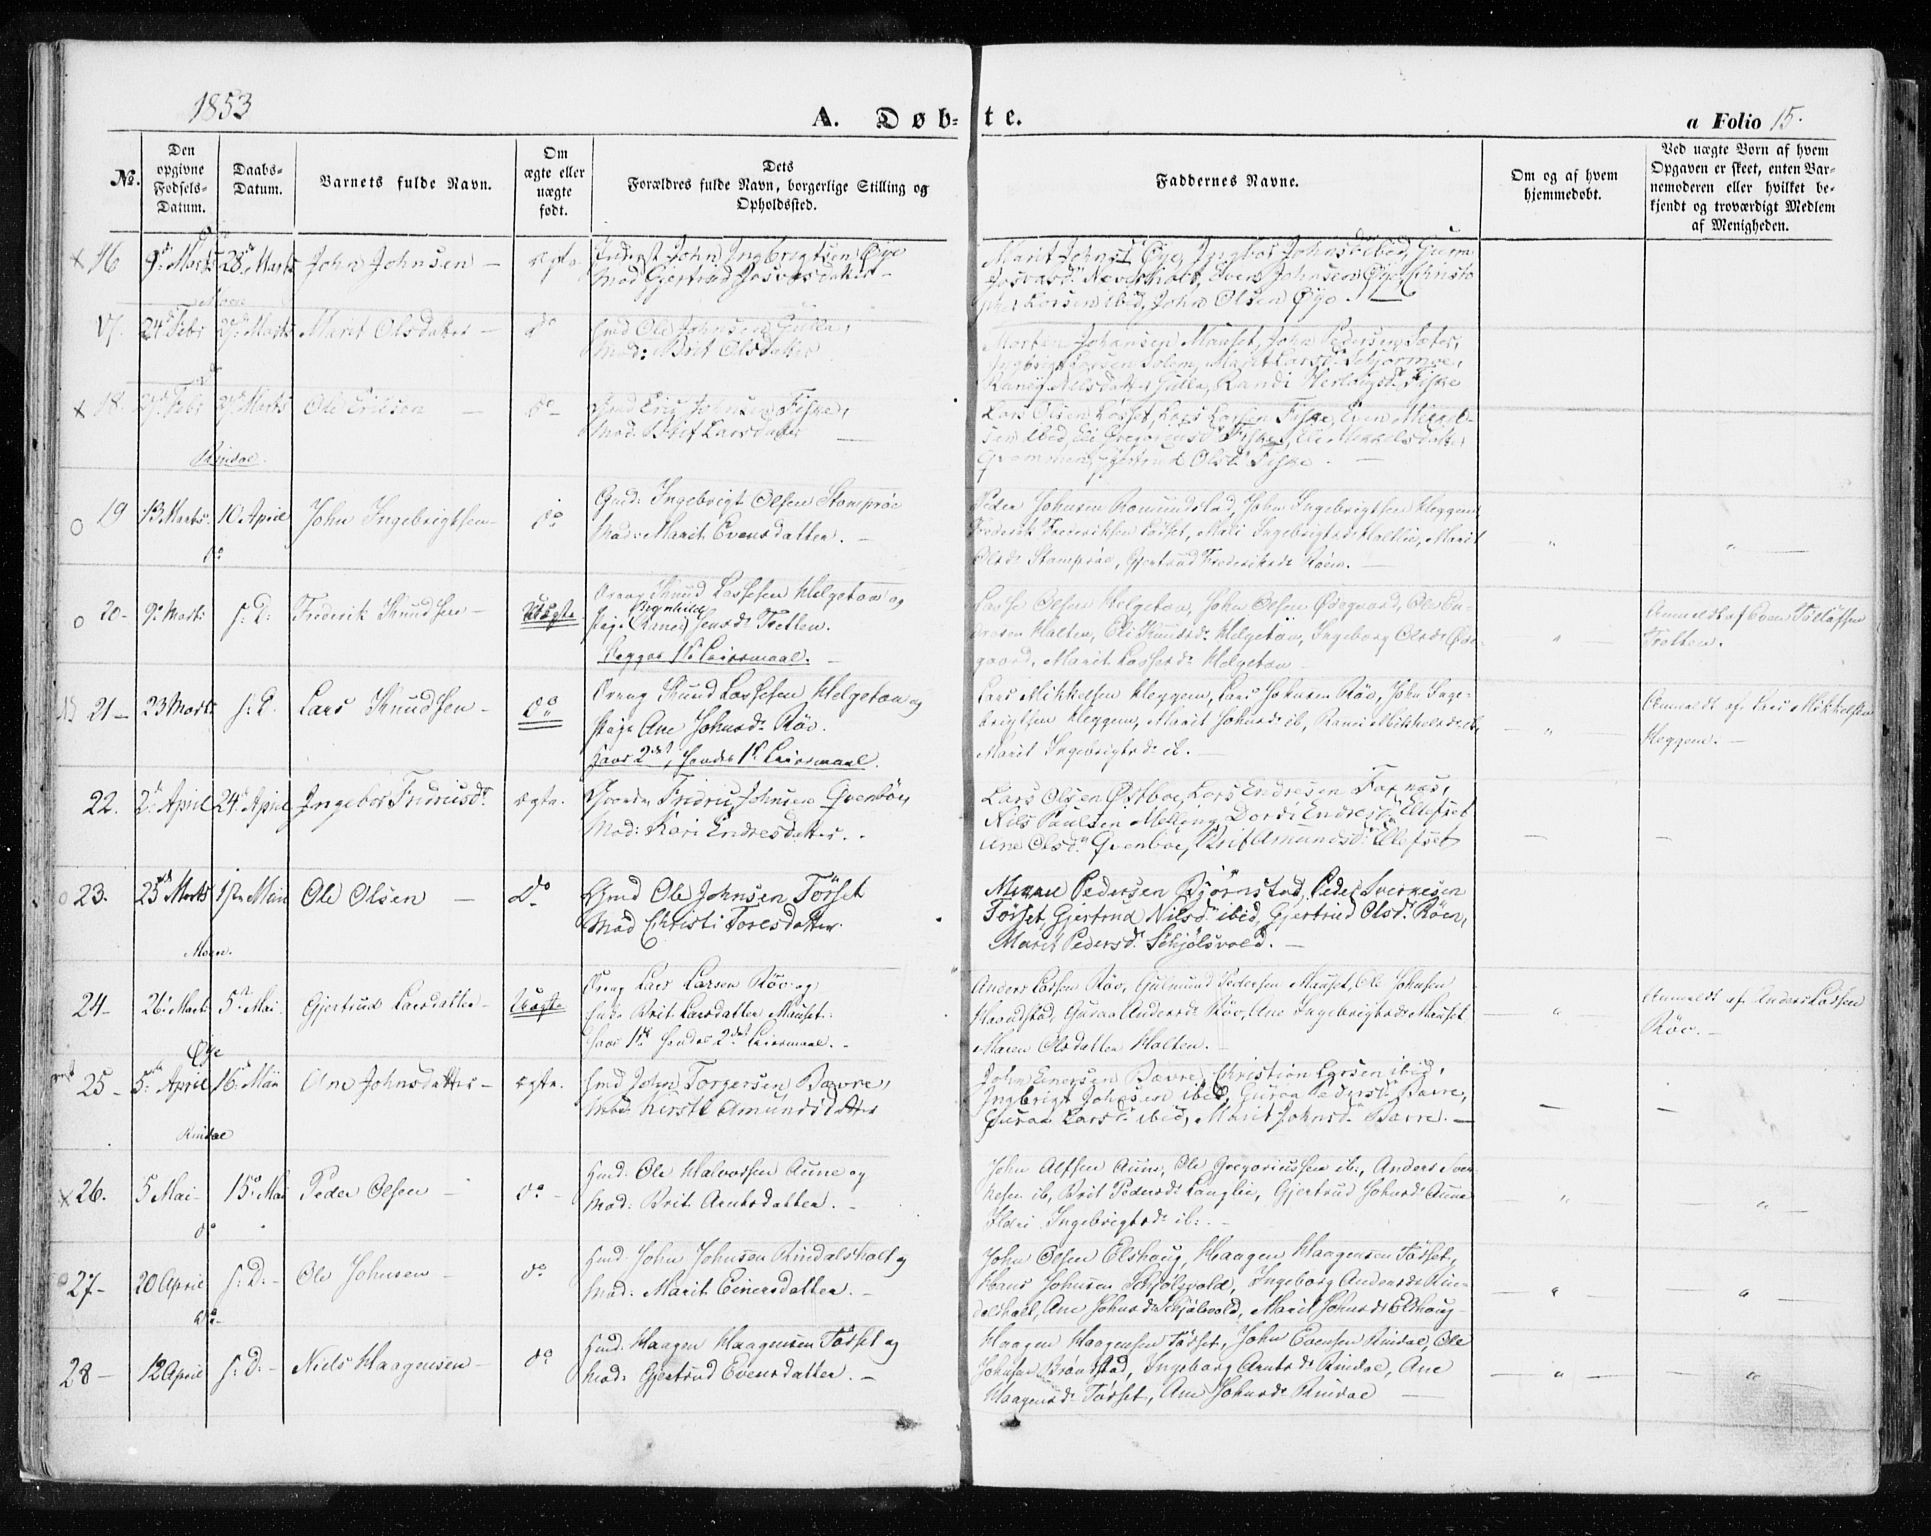 1853
A. Døb-te.
a Folio 15.
No.
Den opgivne Fødsels-Datum.
Daabs-Datum.
Barnets fulde Navn.
Om ægte eller uægte født.
Dets Forældres fulde Navn, borgerlige Stilling og Opholdssted.
Faddernes Navne.
Om og af hvem hjemmedøbt.
Ved uægte Børn af hvem Opgaven er skeet, enten Barnemoderen eller hvilket bekjendt og troværdigt Medlem af Menigheden.
16 9 Marts 28 Marts John Johnsen ægte
John Ingbrigtsen Øye
Mod Gjertrud
Marit Øye, Ingbor
Sven Johnsen Øye, Christo
Larsen ibid, John Olsen Øye
17. 24 Febr 27 Marts Marit Olsdatter do
Gmd Ole Johnsen Gulla,
Mod: Brit Olsdatter
Morten Johansen Mauset, John Pedersen Sæter,
Ingbrigt Larsen Solem, Marit Larsd.
Gulla, Randi Fiske
18. 27 Febr 27 Marts Ole Ericsen do
Gmd Eric Johnsen Fiske,
Mod: Brit Larsdatter
Lars Olsen Løset, Lars Larsen Fiske, Even Mikkel-
sen ibid, Eli Gregoriusd. Fiske, Eli Mikkelsdatter
Gjertrud Olsd. Fiske
Rindal.
19 13 Marts. 10 April John Ingebrigtsen do
Gmd: Ingebrigt Olsen Stomprøe
Mod: Marit Evensdatter.
Peder Johnsen Romundstad, John Ingebrigtsen Heggem
Frederik Frederiksen Løset, Mali Ingebrigtsd. Holten, Marit
Olsd. Stomprøe, Gjertrud Frederiksd. Røen.
do
20- 9 Marts s: D: Frederik Knudsen Uægte
Dreng Knud Lassesen Helgetøn og
Pige (Ranei) Jensd. Tretten.
Begges 1ste Leiermaal.
Lasse Olsen Helgetøn, John Olsen Ødegaard, Ole
Halten, Eli Knudsd. Helgetøn, Ingeborg Olsd. Øde-
gaard, Marit Lassesd. Helgetøn
Anmeldt af
21- 23 Marts s: D. Lars Knudsen do
Dreng Knud Lassesen Helgetøn og
Pige Ane Johnsd. Røv.
Hans 2det, hendes 1ste Leiermaal.
Lars Mikkelsen Heggem, Lars Johnsen Røv, John Inge-
brigtsen Heggem, Marit Johnsd. ib, Ranei Mikkelsd. ib,
Marit Ingebrigtsd. ib.
Anmeldt af Lars Mikkelsen
Heggem.
22. 2 April 24 April Ingebor ægte.
Johnsen Gvenbøe,
Mod: Kari Endresdatter.
Lars Olsen Østboe, Lars Endresen Foxnas,
Nils Paulsen Dordi Endresd. Ulefset
Ane Olsd. Gvenboe, Brit Amundsd. Ulefset
23. 25 Marts 1ste Mai Ole Olsen do
Gmd Ole Johnsen Torset
Mod Christi Toresdatter.
Pedersen Bjørnstad, Peder Sverkesen
Torset, Gjertrud Nilsd. ibid, Gjertrud Olsd. Røen,
Marit Pedersd. Schjølsvold.
Moen.
24- 26 Marts 5 Mai Gjertrud Larsdatter Uægte
Dreng Lars Larsen Røv og
Brit Larsdatter Mauset.
Hans 1ste hendes 2det Leiermaal.
Anders Larsen Røv, Gulmund Pedersen Mauset, Ole Johnsen
Haandstad, Guraa Andersd. Røv, Ane Ingebrigtsd. Mauset
Maren Olsdatter Halten.
Anmeldt af Anders Larsen
Røv.
Øye
25- 5 April 16 Mai Ane Johnsdatter ægte.
Gmd John Torgersen Bævre,
Mod: Kirsti Amundsdatter
John Einersen Bævre, Christian Larsen ibid,
Ingbrigt Johnsen ibid, Guraa Pedersd. Bævre,
Guraa Larsd. ibid, Marit Johnsd. Bævre.
Rindal
26. 5 Mai 15 Mai Peder Olsen do
Gmd: Ole Halvorsen Aune og
Mod: Brit Arntsdatter.
John Alfsen Aune, Ole Gregoriussen ib:, Anders Sver
kesen ib, Brit Pedersd. Langlie, Gjertrud Johnsd. Aune
Ingebrigtsd. ib:
do
27- 20 April s: D: Ole Johnsen do
Gmd: John Johnsen Rindalsholt og
Mod: Marit Einersdatter.
John Olsen Elshaug, Haagen Haagensen Torset,
Hans Johnsen Schjølsvold, Ingeborg Andersd. Rin-
dalsholt, Ane Johnsd. Schjølsvold, Marit Johnsd. Elshaug
do
28- 12 April s: D: Niels Haagensen do
Gmd: Haagen Haagensen Torset og
Mod: Gjertrud Evensdatter.
Haagen Haagensen Torset, John Evensen Rindal, Ole
Johnsen Brønstad, Ingeborg Arntsd. Rindal, Ane
Haagensd. Torset, Ane Johnsd. Rindal